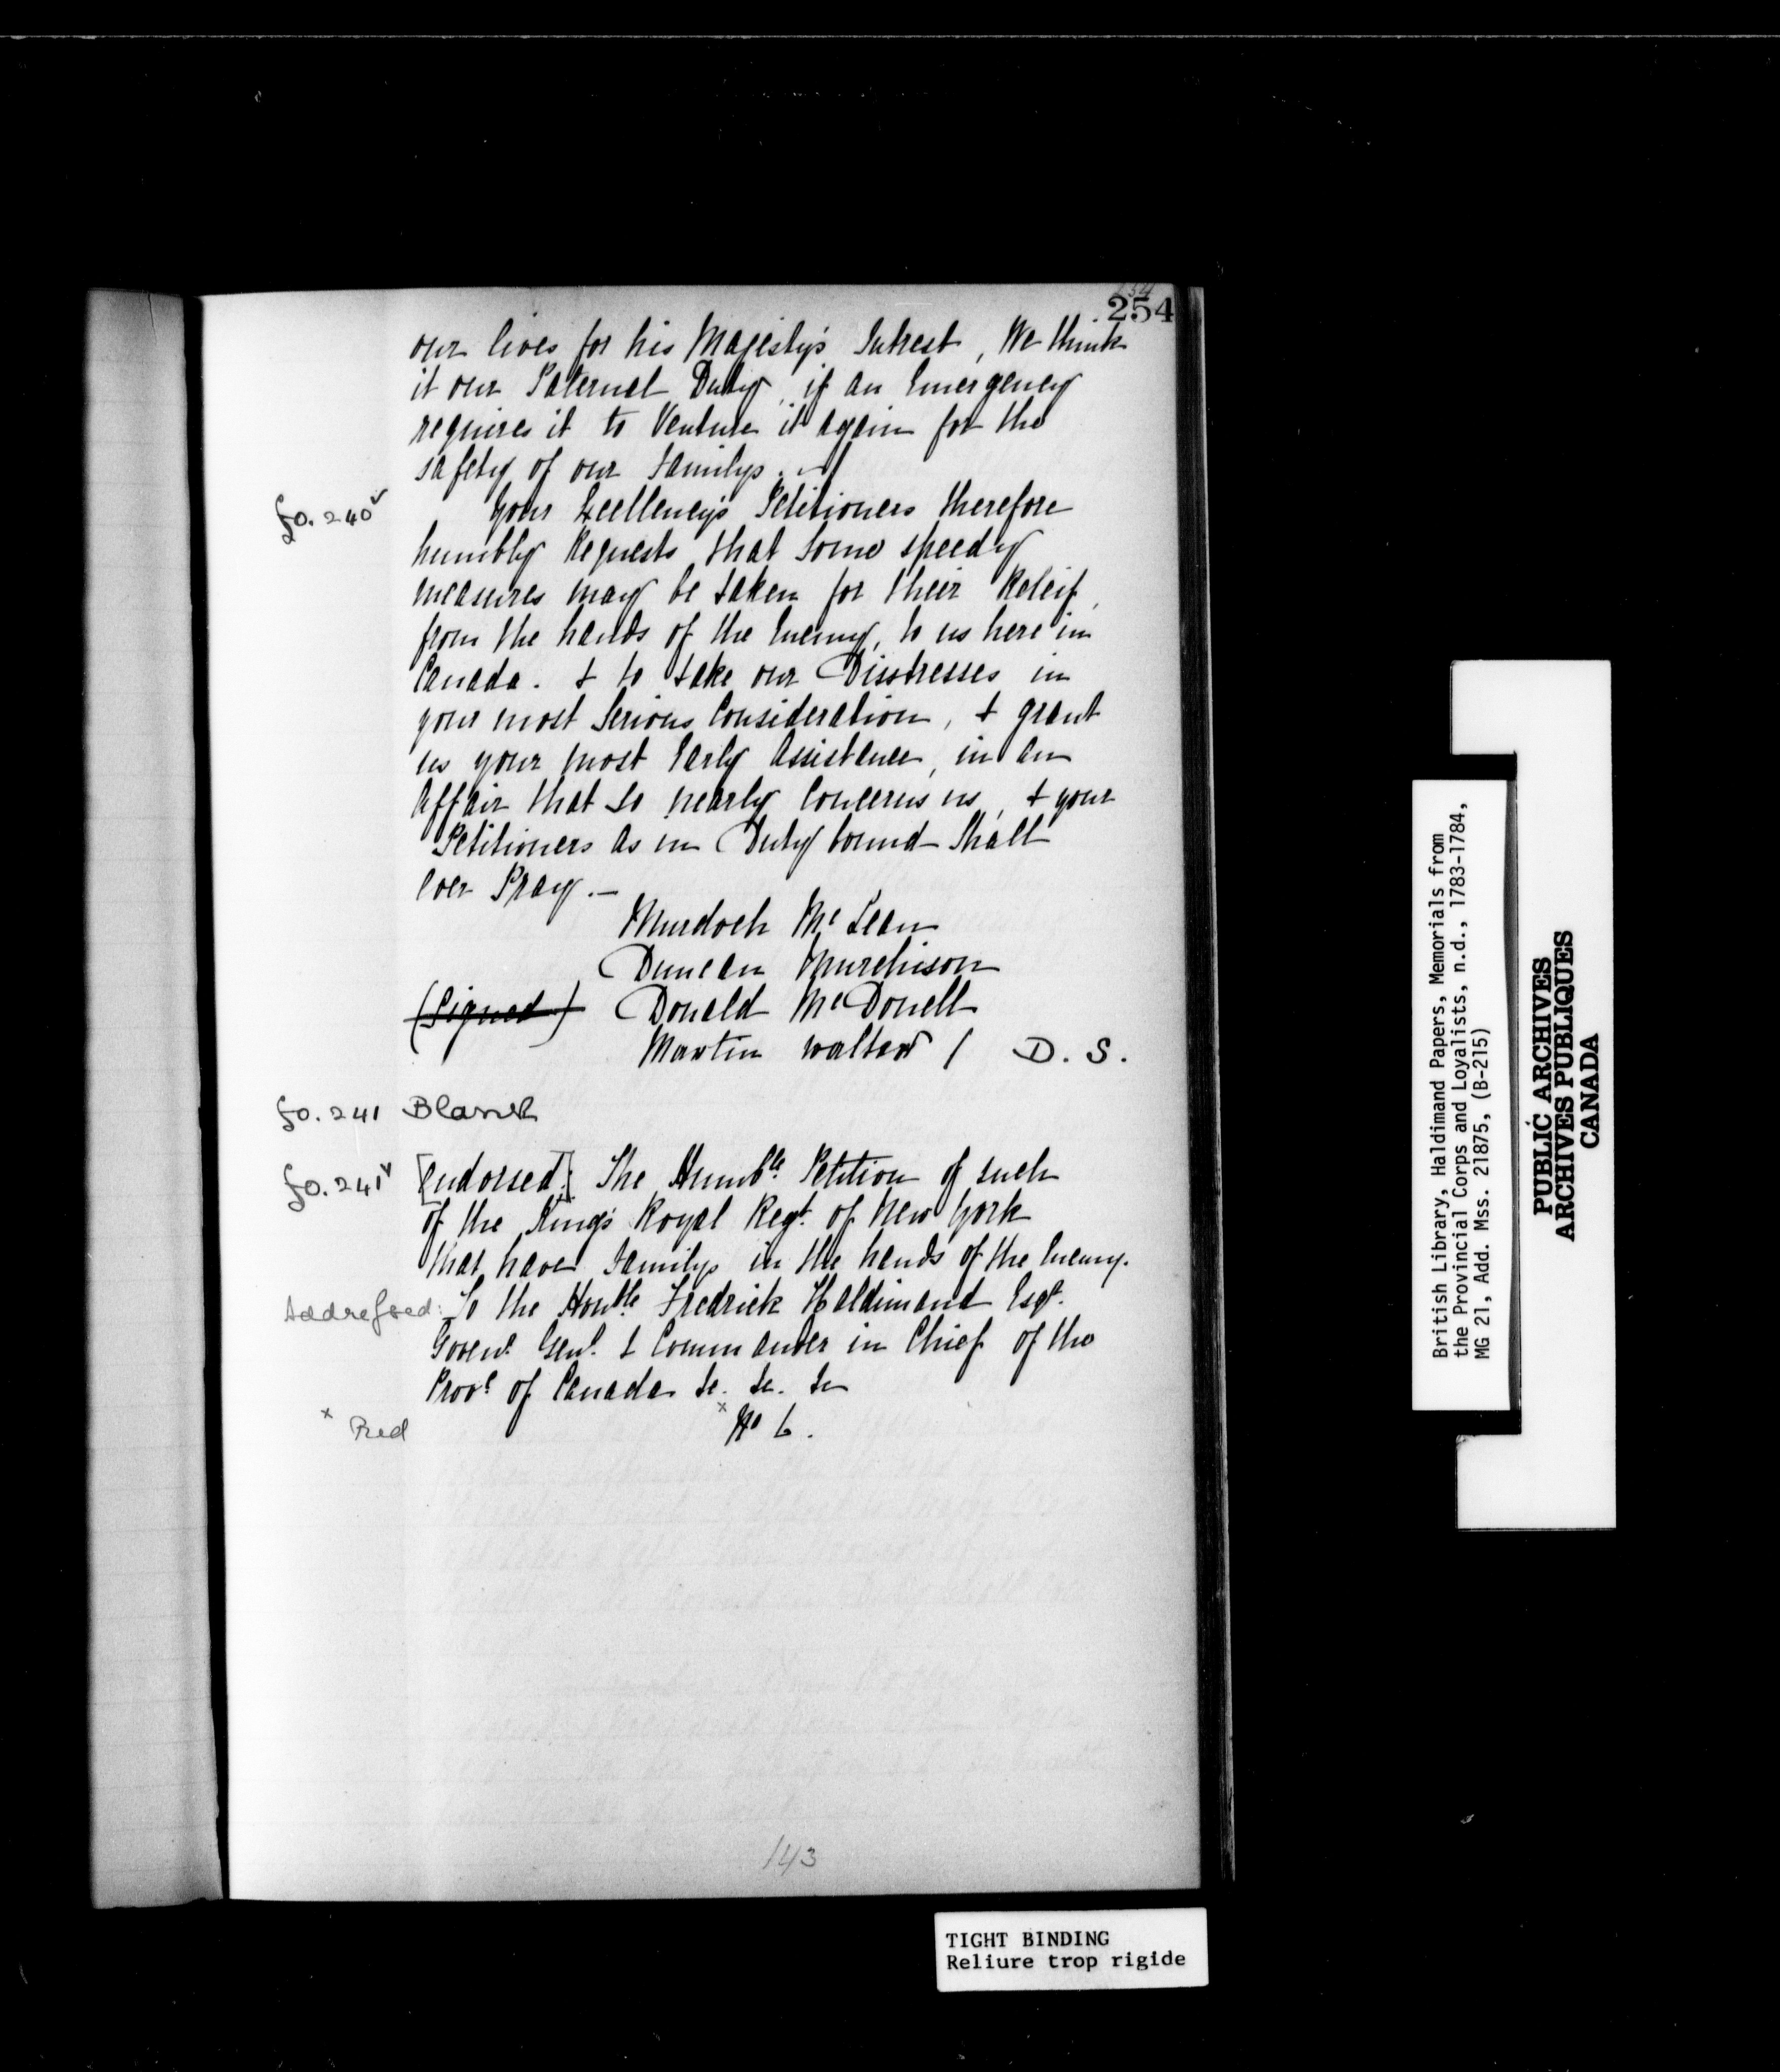 254
254
our lives for his Majesty's Intrest, We think
it our Paternel Duty, if an Emergency
requires it to Venture it again for the
safety of our familys.
fo. 240v
Your Excellency's Petitioners therefore
humbly Requests that some speedy
measures may be taken for their Releif,
from the hands of the Enemy, to us here in
Canada. & to take our Disstresses in
your most Serious Consideration, & grant
us your most Early Assistance, in an
Affair that so nearly Concerns us, & your
Petitioners as in Duty bound Shall
Ever Pray.—
Murdoch Mc Lean
Duncan Murchison
(Signed) Donald McDonell
Martin Walter / D. S.
fo. 241 Blank
fo. 241v [Endorsed:] The Humble Petition of such
of the King's Royal Regt. of New York
that have familys in the hands of the Enemy.
Addressed: To the Honble Fredrick Haldimand Esqr.
Governr. Genl. & Commander in Chief of the
Provce of Canada &c. &c. &c
x Red
x No 6.
143
TIGHT BINDING
Reliure trop rigide
British Library, Haldimand Papers, Memorials from
the Provincial Corps and Loyalists, n.d., 1783-1784,
MG 21, Add. Mss. 21875, (B-215)
PUBLIC ARCHIVES
ARCHIVES PUBLIQUES
CANADA